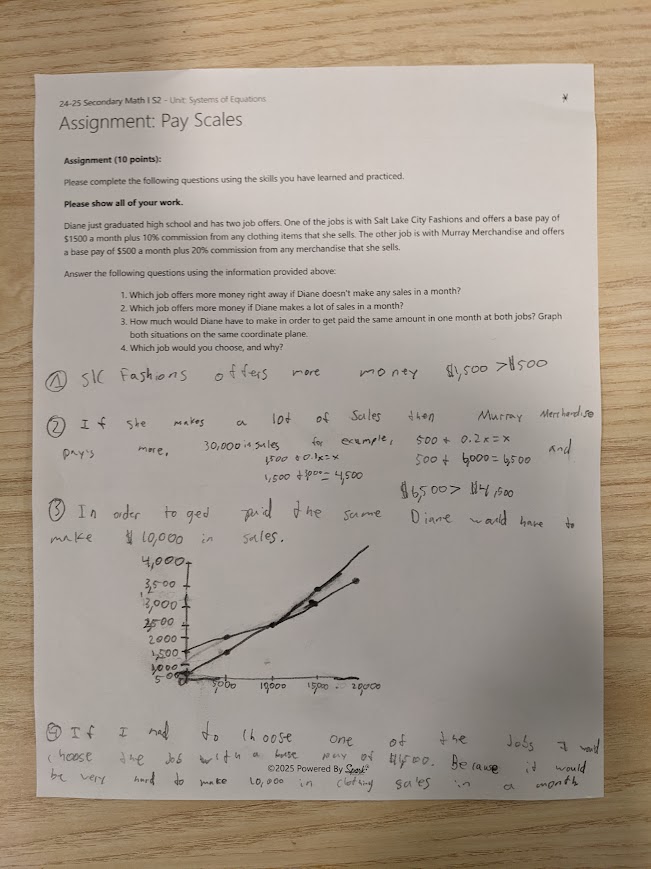 24-25 Secondary Math I S2 - Unit: Systems of Equations
*
Assignment: Pay Scales
Assignment (10 points):
Please complete the following questions using the skills you have learned and practiced.
Please show all of your work.
Diane just graduated high school and has two job offers. One of the jobs is with Salt Lake City Fashions and offers a base pay of
$1500 a month plus 10% commission from any clothing items that she sells. The other job is with Murray Merchandise and offers
a base pay of $500 a month plus 20% commission from any merchandise that she sells.
Answer the following questions using the information provided above:
1. Which job offers more money right away if Diane doesn't make any sales in a month?
2. Which job offers more money if Diane makes a lot of sales in a month?
3. How much would Diane have to make in order to get paid the same amount in one month at both jobs? Graph
both situations on the same coordinate plane.
4. Which job would you choose, and why?
① SIC Fashions offers more money $1,500 > $500
② If she makes a lot of sales then Murray Merchandise
pay's more, 30,000 in sales for example, 500 + 0.2x=x and
1,500 + 0.1x=x 500 + 6,000 = 6,500
1,500 + 3000 = 4,500
$6,500 > $4,500
③ In order to ged paid the same Diane would have to
make $10,000 in sales.
4,000
3,500
3,000
2,500
2000
1,500
1,000
500
5,000 10,000 15,000 20,000
④ If I had to choose one of the jobs I would
choose the job with a base pay of $1,500. Because it would
©2025 Powered By Spark
be very hard to make 10,000 in clothing sales in a month